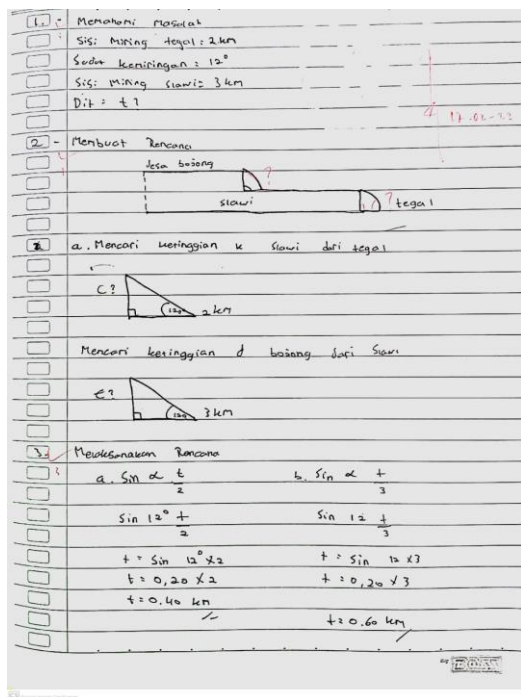 1. - Memahami Masalah
Sisi Miring tegal = 2 km
Sudut kemiringan = 12°
Sisi Miring slawi = 3 km
Dit = t ?
17-02-23
2 - Membuat Rencana
desa bojong
?
slawi
? tegal
a. Mencari ketinggian k Slawi dari tegal
C?
120 2 km
Mencari ketinggian d bojong dari Slawi
t?
120 3 km
3. Melaksanakan Rencana
a. Sin α t/2
b. Sin α t/3
Sin 12° t/2
Sin 12 t/3
t = Sin 12° x2
t = Sin 12 x3
t = 0,20 x2
t = 0,20 x3
t = 0.40 km
t = 0.60 km